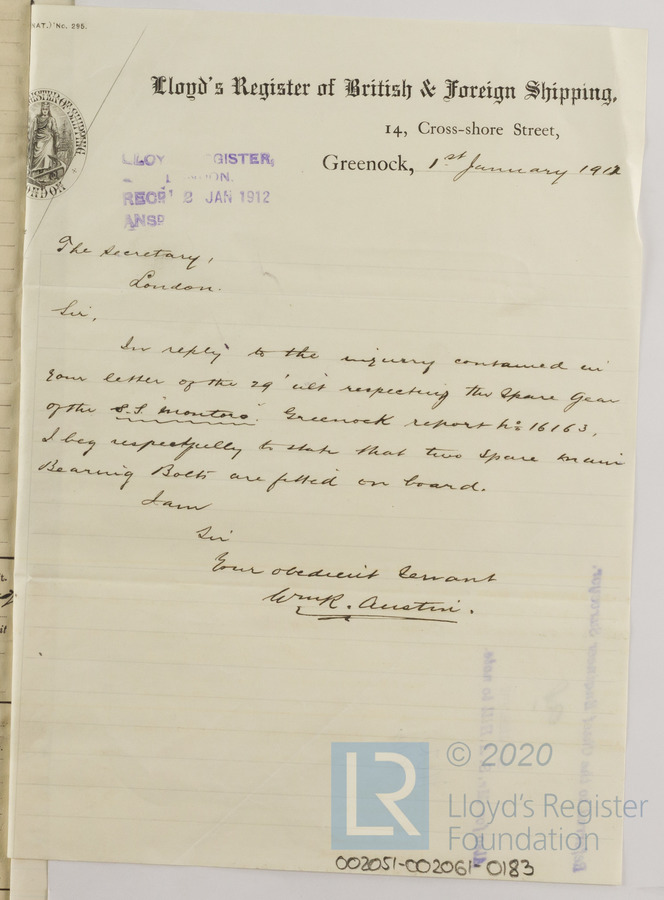 NAT.) No. 295.
Lloyd's Register of British & Foreign Shipping.
14, Cross-shore Street,
Greenock, 1st January 1912
LLOY GISTER,
LONDON
REC'D 2 JAN 1912
ANSD
The Secretary,
London.
Sir,
In reply to the inquiry contained in
Your letter of the 29' ult respecting the Spare Gear
of the S.S. "Montoro". Greenock report No 16163,
I beg respectfully to state that two Spare main
Bearing Bolts are fitted on board.
I am
Sir
Your obedient Servant
Wm R. Austin.
© 2020
LR
Lloyd's Register
Foundation
002051-002061-0183